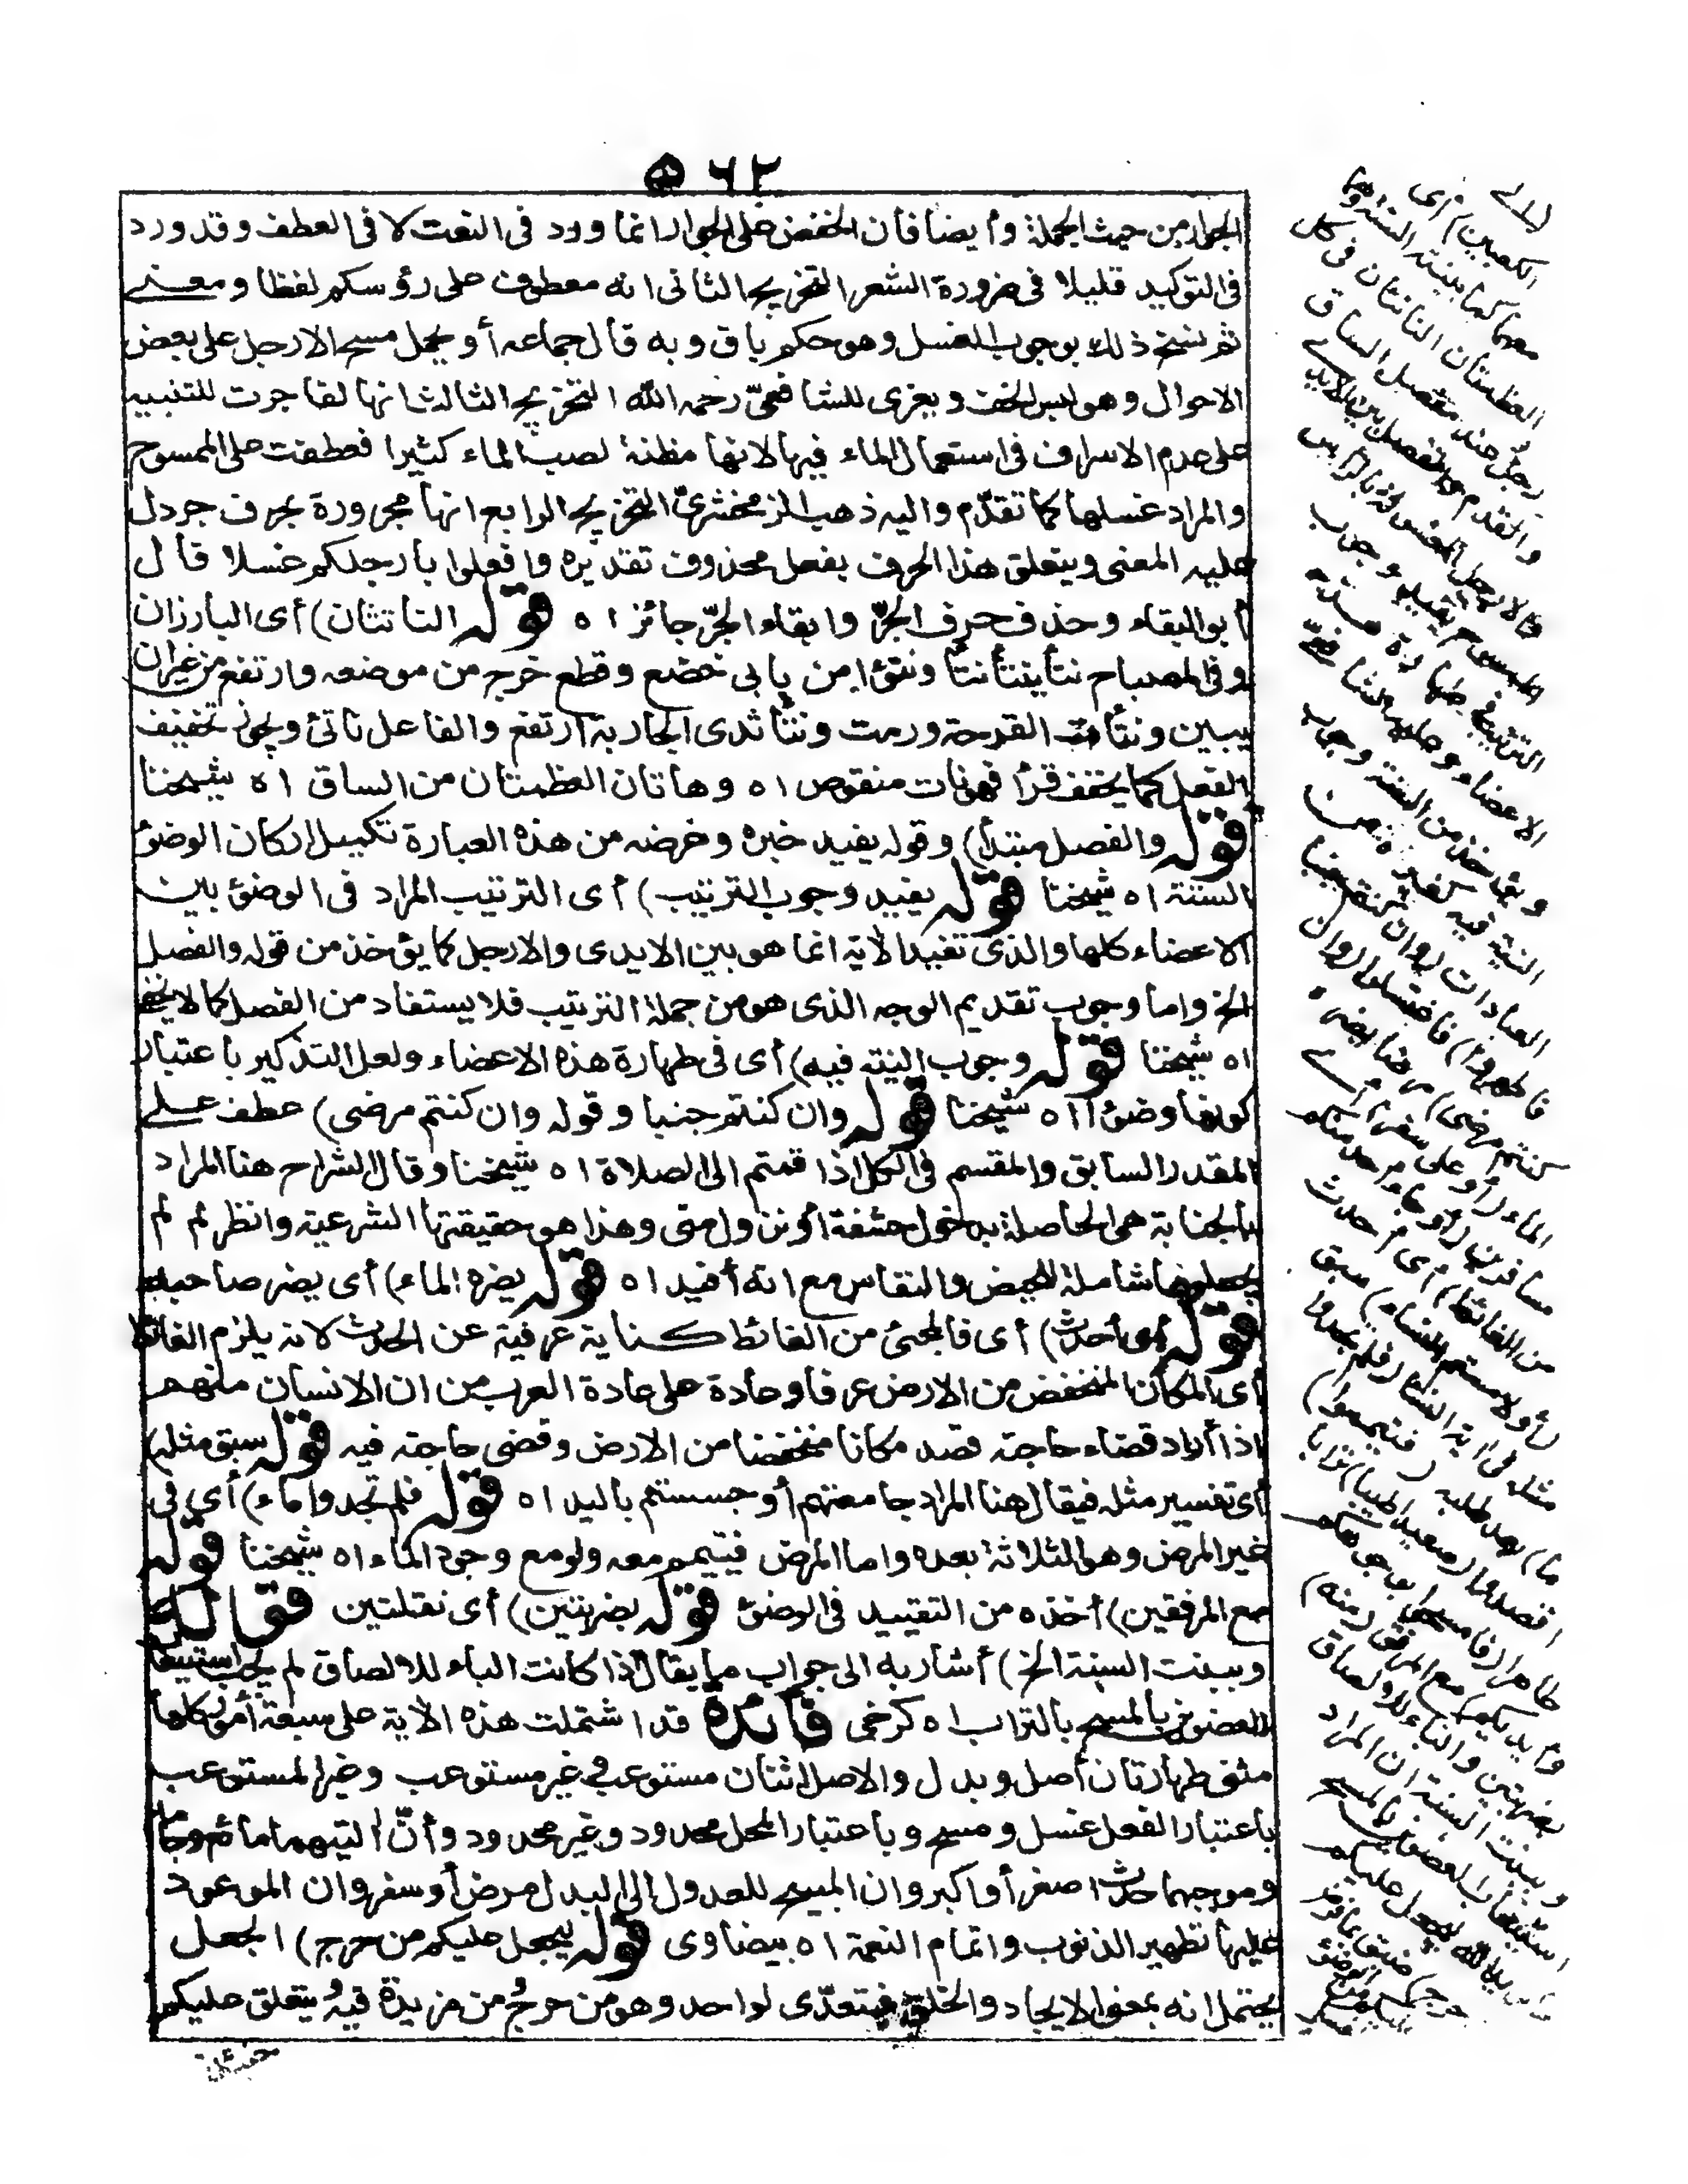 ٥٦٢
الجوار من حيث الجملة وأيضا فان الخفض على الجوار انما ورد فى النعت لا فى العطف وقد ورد
فى التوكيد قليلا فى ضرورة الشعر التخريج الثانى انه معطوف على رؤسكم لفظا ومعنى
ثم نسخ ذلك بوجوب الغسل وهو حكم باق وبه قال جماعه أو يحمل مسح الارجل على بعض
الاحوال وهو لبس الخف ويعزى للشافعىّ رحمه الله التخريج الثالث انها لقا جرت للتنبيه
على عدم الاسراف فى استعمال الماء فيها لانها مظنة لصب الماء كثيرا فعطفت على الممسوح
والمراد غسلها كما تقدّم واليه ذهب الزمخشرىّ التخريج الرابع انها مجرورة بحرف جر دل
عليه المعنى ويتعلق هذا الحرف بفعل محذوف تقديره وافعلوا بأرجلكم غسلا قال
أبو البقاء وحذف حرف الجرّ وابقاء الجرّ جائز اه قوله الناتئان) أى البارزان
وفى المصباح نتأ ينتأ نتأ ونتوءا من بابى خضع وقطع خرج من موضعه وارتفع من غير ان
يبين ونتأت القرحة ورمت ونتأ ثدى الجارية ارتفع والفاعل ناتئ ويجوز تخفيف
الفعل كما يخفف قرأ فهو نات منقوص اه وهاتان العظمتان من الساق اه شيخنا
قوله والفصل مبتدأ) وقوله يفيد خبره وغرضه من هذه العبارة تكميل اركان الوضوء
الستة اه شيخنا قوله يفيد وجوب الترتيب) أى الترتيب المراد فى الوضوء بين
الاعضاء كلها والذى تفيد الآية انما هو بين الايدى والارجل كما يؤخذ من قوله والفصل
الخ واما وجوب تقديم الوجه الذى هو من جملة الترتيب فلا يستفاد من الفصل كما لا يخفى
اه شيخنا قوله وجوب النية فيه) أى فى طهارة هذه الاعضاء ولعل التذكير باعتبار
كونها وضوءا اه شيخنا قوله وان كنتم جنبا وقوله وان كنتم مرضى) عطف على
المقدر السابق والمقسم فى الكل اذا قمتم الى الصلاة اه شيخنا وقال الشراح هنا المراد
بالجنابة هى الحاصلة بدخول حشفة أو نزول منى وهذا هو حقيقتها الشرعية وانظر لم لم
يجعلوها شاملة للحيض والنفاس مع انه أفيد اه قوله يضره الماء) أى يضر صاحبه
قوله أى أحدث) أى فالمجئ من الغائط كناية عرفية عن الحدث لانه يلزم الغائط
أى المكان المنخفض من الارض عرفا وعادة على عادة العرب من ان الانسان منهم
اذا أراد قضاء حاجته قصد مكانا منخفضا من الارض وقضى حاجته فيه قوله سبق مثله)
أى تفسير مثله فيقال هنا المراد جامعتهم أو جسستم باليد اه قوله فلم تجدوا ماء) أى فى
غير المرض وهو الثلاثة بعده واما المرض فيتيمم معه ولو مع وجود الماء اه شيخنا قوله
مع المرفقين) أخذه من التقييد فى الوضوء قوله بضربتين) أى نقلتين قوله
وبينت السنة الخ) أشار به الى جواب ما يقال اذا كانت الباء للالصاق لم يجب استيعاب
العضوين بالمسح بالتراب اه كرخى فائدة قد اشتملت هذه الآية على سبعة أمور كلها
مثنى طهارتان أصل وبدل والاصل اثنان مستوعب وغير مستوعب وغير المستوعب
باعتبار الفعل غسل ومسح وباعتبار المحل محدود وغير محدود وأنّ آلتيهما مائع وجامد
وموجبهما حدث اصغر أو اكبر وان المبيح للعدول الى البدل مرض أو سفر وان الموعود
عليها تطهير الذنوب واتمام النعمة اه بيضاوى قوله ليجعل عليكم من حرج) الجعل
يحتمل انه بمعنى الايجاد والخلق فيتعدّى لواحد وهو من حرج ومن مزيدة فيه ويتعلق عليكم
الكعبين) أى
معهما كما بينته السنة وهما
العظمتان الناتئتان فى كل
رجل عند مفصل الساق
والقدم والفصل بين الايدى
والارجل المغسولة بالرأس
الممسوح يفيد وجوب
الترتيب فى طهارة هذه
الاعضاء وعليه الشافعى
ويؤخذ من السنة وجوب
النية فيه كغيره من
العبادات (وان كنتم جنبا
فاطهروا) فاغتسلوا (وان
كنتم مرضى) مرضا يضره
الماء (أو على سفر) أى
مسافرين (أو جاء أحد منكم
من الغائط) أى أحدث
(أو لامستم النساء) سبق
مثله فى آية النساء (فلم تجدوا
ماء) بعد طلبه (فتيمموا)
اقصدوا (صعيدا طيبا) ترابا
طاهرا (فامسحوا بوجوهكم
وأيديكم) مع المرفقين (منه)
بضربتين والباء للالصاق
وبينت السنة ان المراد
استيعاب العضوين بالمسح
(ما يريد الله ليجعل عليكم